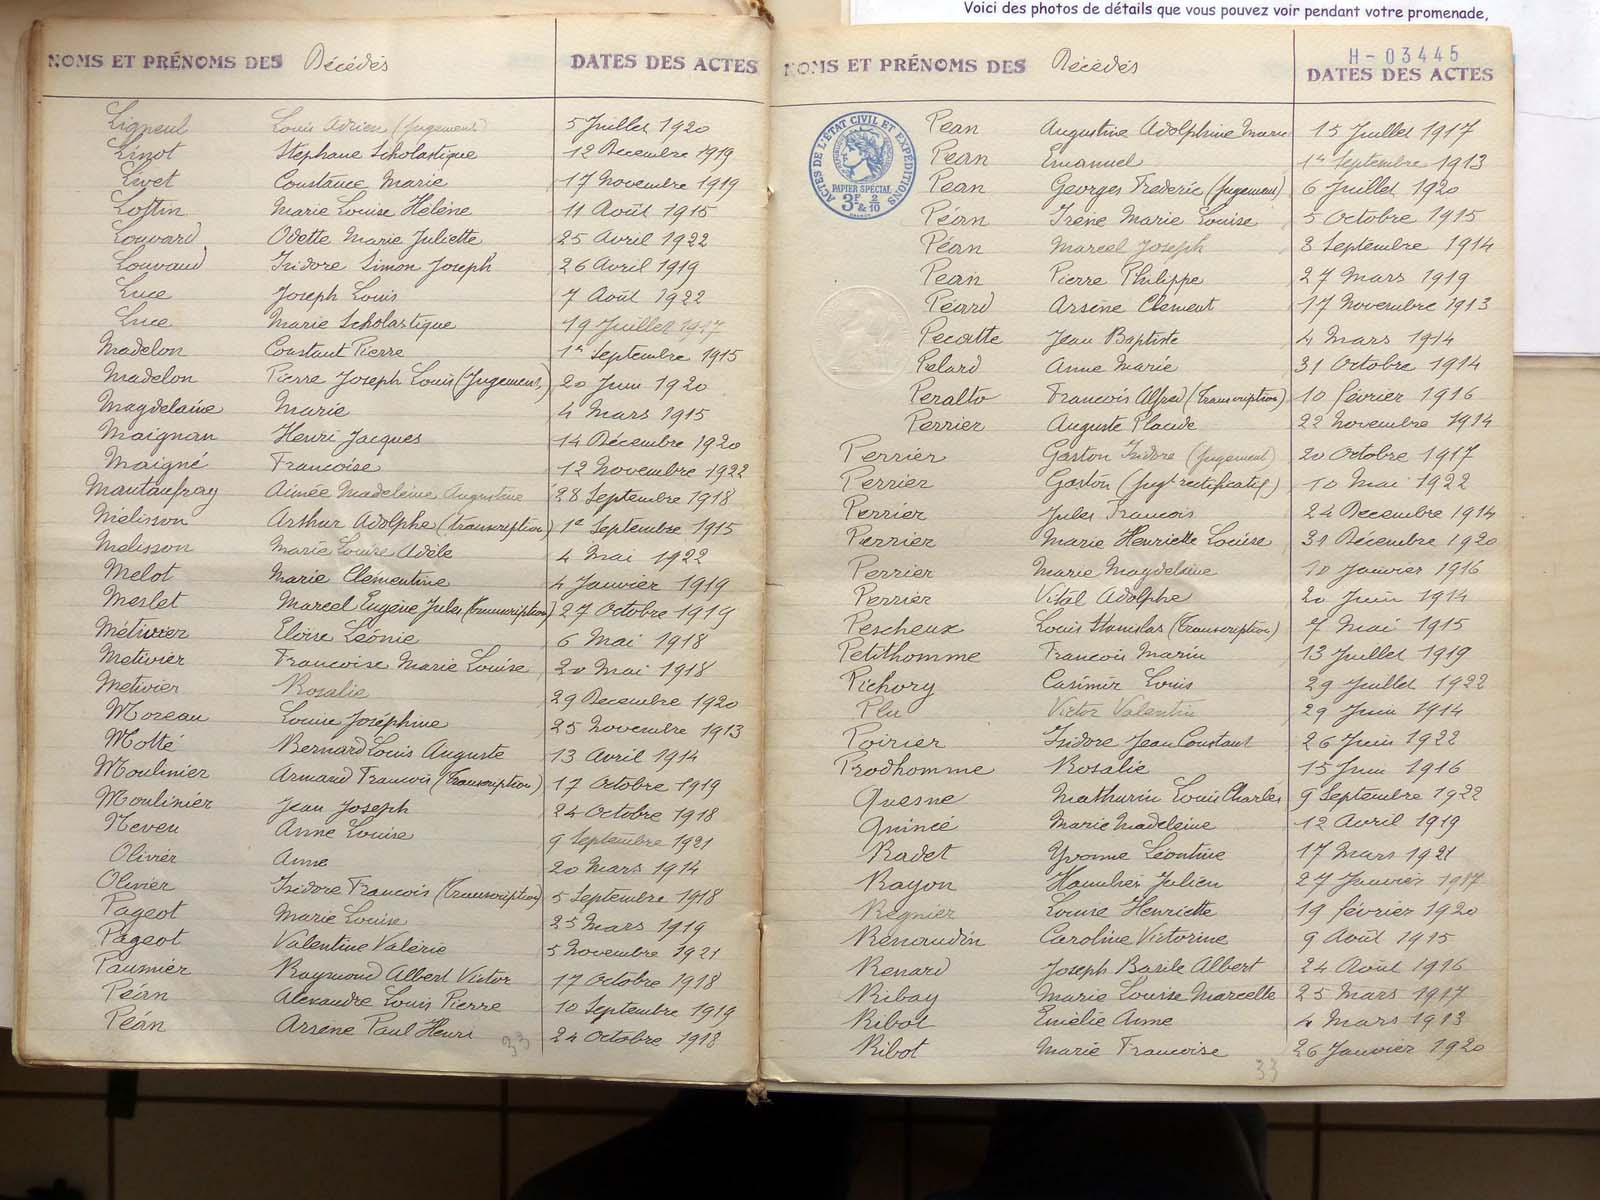 Voici des photos de détails que vous pouvez voir pendant votre promenade,
NOMS ET PRÉNOMS DES Décédés DATES DES ACTES
Ligneul Louis Adrien (Jugement) 5 Juillet 1920
Linot Stéphane Scholastique 12 Décembre 1919
Livet Constance Marie 17 Novembre 1919
Loftin Marie Louise Hélène 11 Août 1915
Louvard Odette Marie Juliette 25 Avril 1922
Louvard Isidore Simon Joseph 26 Avril 1919
Luce Joseph Louis 7 Août 1922
Luce Marie Scholastique 19 Juillet 1917
Madelon Constant Pierre 1er Septembre 1915
Madelon Pierre Joseph Louis (Jugement) 20 Juin 1920
Magdelaine Marie 4 Mars 1915
Maignan Henri Jacques 14 Décembre 1920
Maigné Francoise 12 Novembre 1922
Mautaufray Aimée Madeleine Augustine 28 Septembre 1918
Mélisson Arthur Adolphe (transcription) 1er Septembre 1915
Melisson Marie Louise Adèle 4 Mai 1922
Melot Marie Clémentine 4 Janvier 1919
Meslet Marcel Eugène Jules (Transcription) 27 Octobre 1919
Métivier Eloïse Léonie 6 Mai 1918
Metivier Francoise Marie Louise 20 Mai 1918
Metivier Rosalie 29 Décembre 1920
Moreau Louise Joséphine 25 Novembre 1913
Motté Bernard Louis Auguste 13 Avril 1914
Moulinier Armand Francois (Transcription) 17 Octobre 1919
Moulinier Jean Joseph 24 Octobre 1918
Neveu Anne Louise 9 Septembre 1921
Olivier Anne 20 Mars 1914
Olivier Isidore Francois (Transcription) 5 Septembre 1918
Pageot Marie Louise 25 Mars 1919
Pageot Valentine Valérie 5 Novembre 1921
Paumier Raymond Albert Victor 17 Octobre 1918
Péan Alexandre Louis Pierre 10 Septembre 1919
Péan Arsène Paul Henri 24 Octobre 1918
33
H-03445
NOMS ET PRÉNOMS DES Décédés DATES DES ACTES
ACTES DE L'ÉTAT CIVIL ET EXPÉDITIONS
PAPIER SPÉCIAL
3F & 2/10
Pean Augustine Adolphine Marie 15 Juillet 1917
Pean Emanuel 1er Septembre 1913
Pean Georges Frederic (Jugement) 6 Juillet 1920
Péan Irène Marie Louise 5 Octobre 1915
Péan Marcel Joseph 3 Septembre 1914
Pean Pierre Philippe 27 Mars 1919
Péard Arsène Clement 17 Novembre 1913
Pecatte Jean Baptiste 4 Mars 1914
Pelard Anne Marie 31 Octobre 1914
Peralto Francois Alfred (Transcription) 10 février 1916
Perrier Auguste Placide 22 Novembre 1914
Perrier Gaston Isidore (Jugement) 20 Octobre 1917
Perrier Gaston (Jugt rectificatif) 10 Mai 1922
Perrier Jules Francois 24 Decembre 1914
Perrier Marie Henriette Louise 31 Décembre 1920
Perrier Marie Magdeleine 10 Janvier 1916
Perrier Vital Adolphe 20 Juin 1914
Pescheux Louis Stanislas (Transcription) 7 Mai 1915
Petithomme Francois Marin 13 Juillet 1919
Pichory Casimir Louis 29 Juillet 1922
Plu Victor Valentin 29 Juin 1914
Poirier Isidore Jean Constant 26 Juin 1922
Prodhomme Rosalie 15 Juin 1916
Quesne Mathurin Louis Charles 9 Septembre 1922
Quincé Marie Madeleine 12 Avril 1919
Radet Yvonne Léontine 17 Mars 1921
Rayon Julien 27 Janvier 1917
Regnier Louise Henriette 19 février 1920
Renaudin Caroline Victorine 9 Août 1915
Renard Joseph Basile Albert 24 Août 1916
Ribay Marie Louise Marcelle 25 Mars 1917
Ribot Emélie Anne 4 Mars 1913
Ribot Marie Francoise 26 Janvier 1920
33